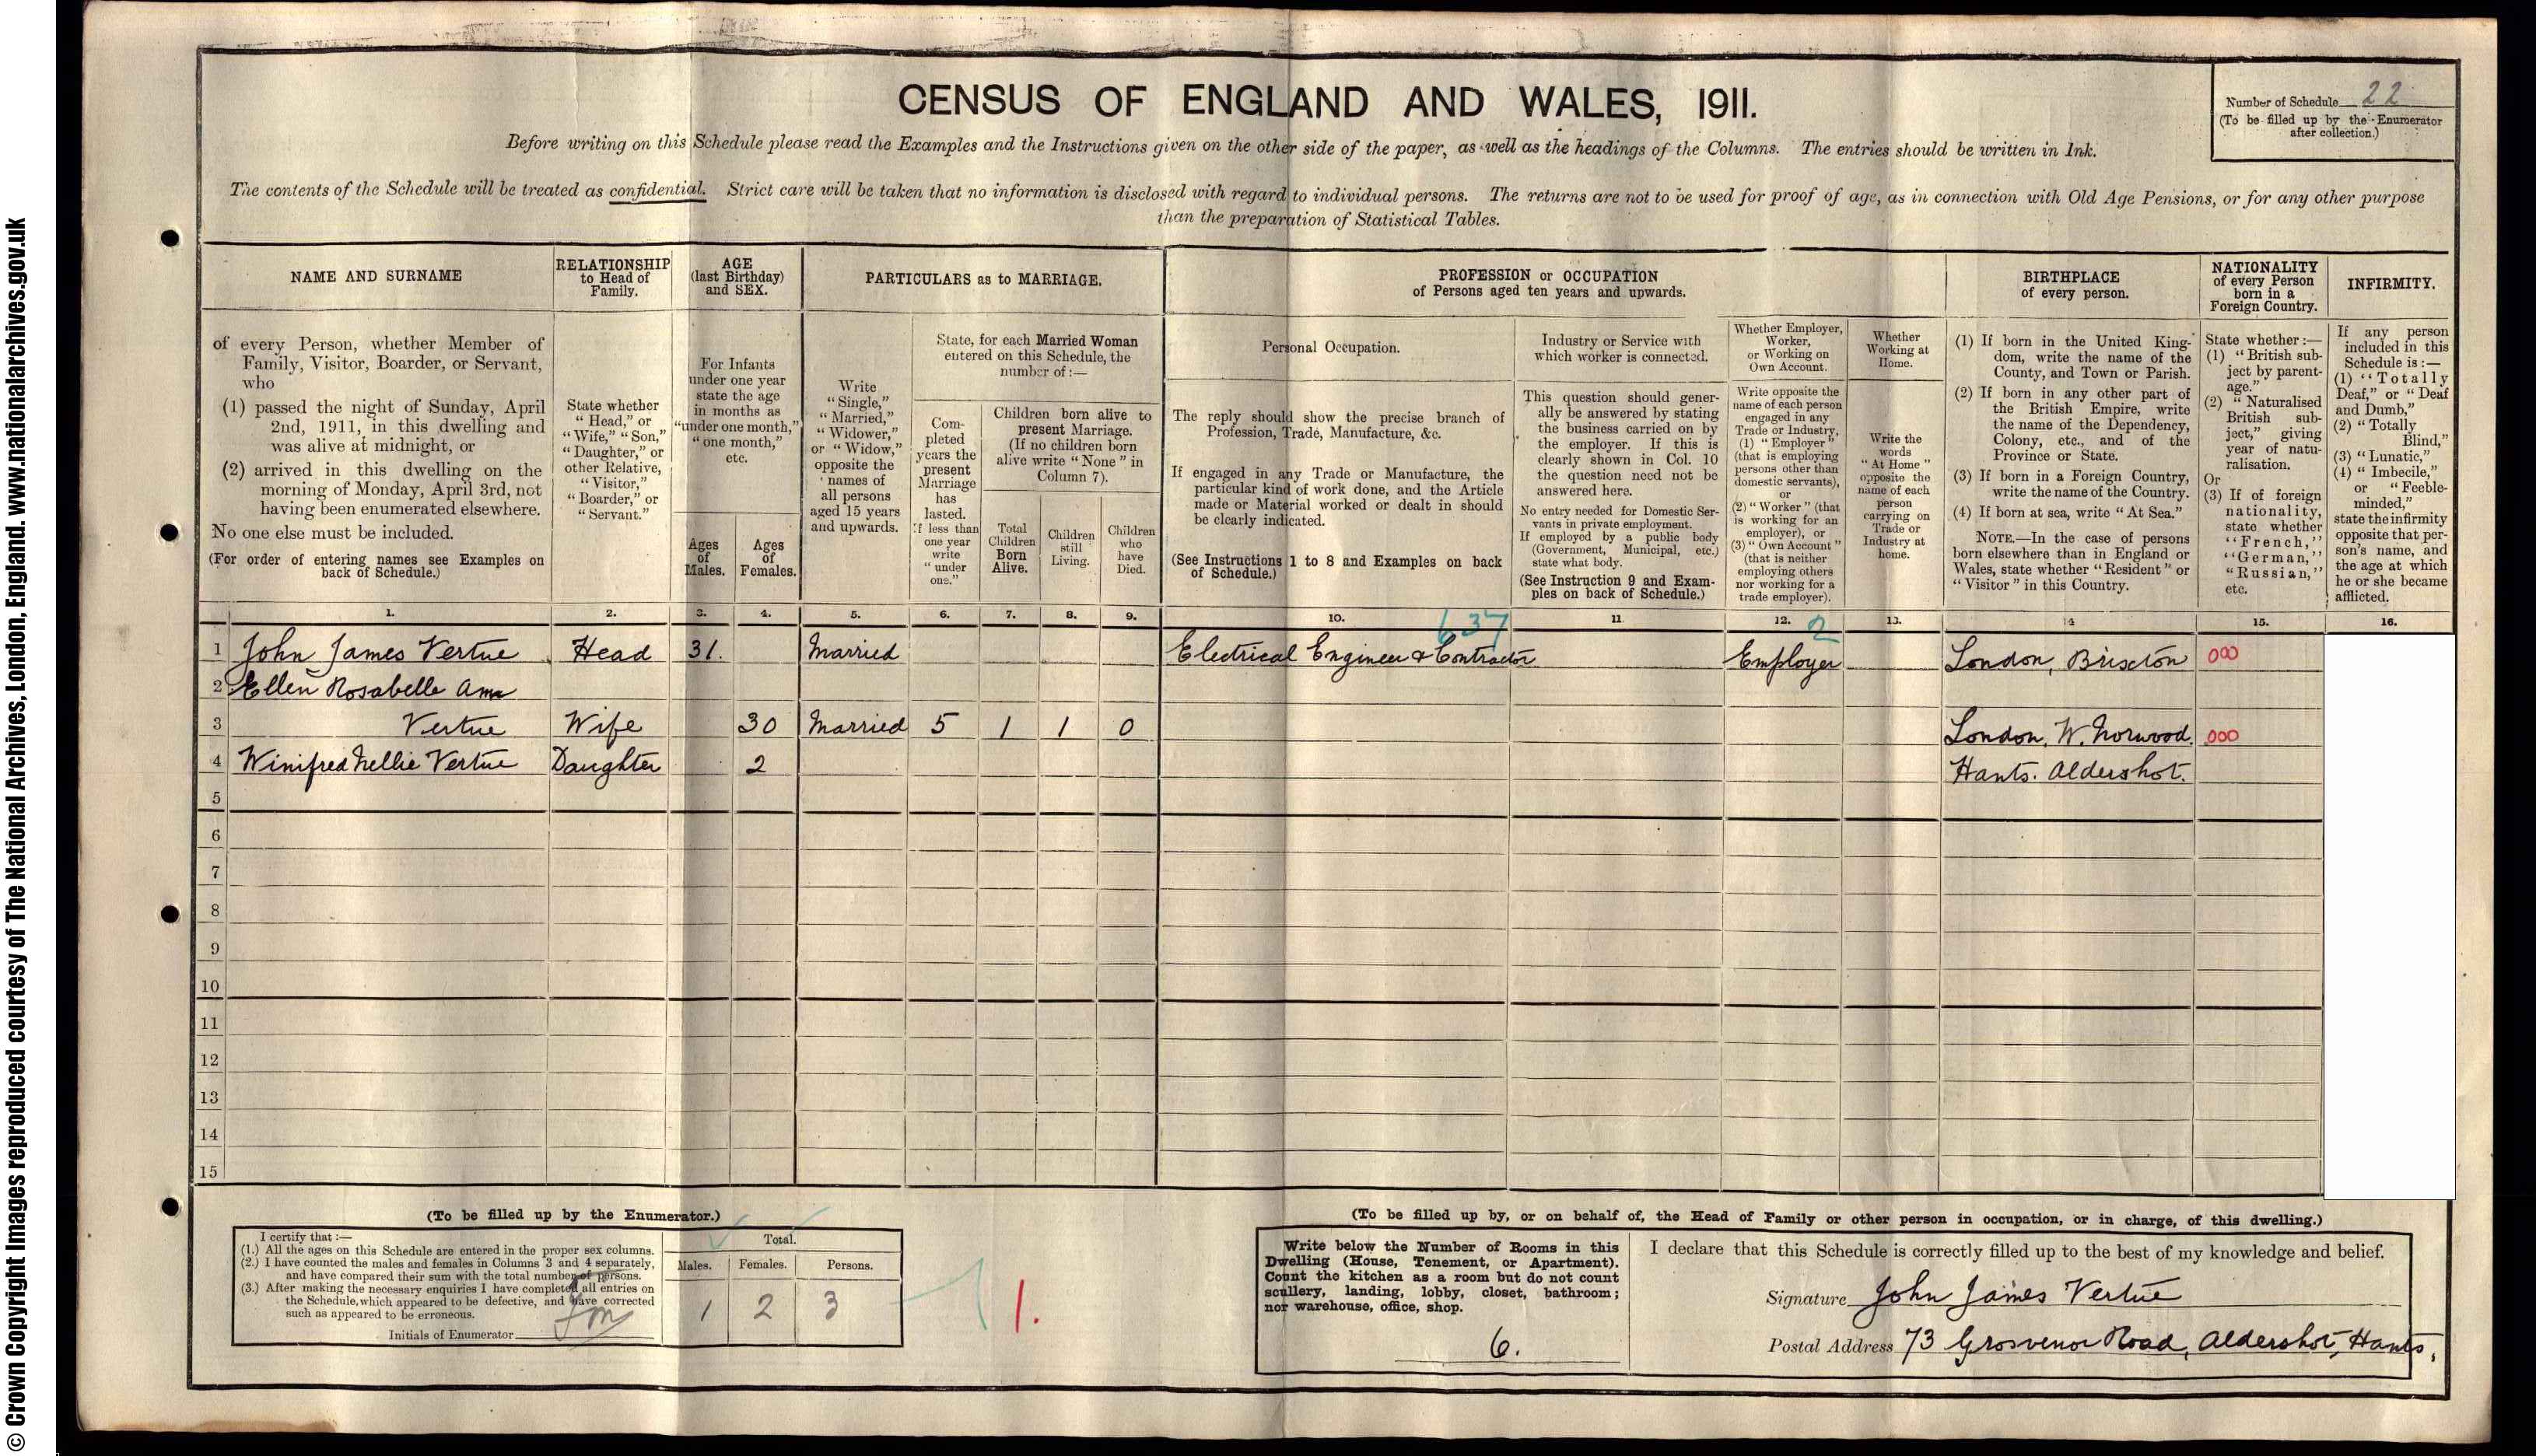 © Crown Copyright Images reproduced courtesy of The National Archives, London, England. www.nationalarchives.gov.uk
CENSUS OF ENGLAND AND WALES, 1911.
Number of Schedule 22
(To be filled up by the Enumerator
after collection.)
Before writing on this Schedule please read the Examples and the Instructions given on the other side of the paper, as well as the headings of the Columns. The entries should be written in Ink.
The contents of the Schedule will be treated as confidential. Strict care will be taken that no information is disclosed with regard to individual persons. The returns are not to be used for proof of age, as in connection with Old Age Pensions, or for any other purpose
than the preparation of Statistical Tables.
NAME AND SURNAME
of every Person, whether Member of
Family, Visitor, Boarder, or Servant,
who
(1) passed the night of Sunday, April
2nd, 1911, in this dwelling and
was alive at midnight, or
(2) arrived in this dwelling on the
morning of Monday, April 3rd, not
having been enumerated elsewhere.
No one else must be included.
(For order of entering names see Examples on
back of Schedule.)
RELATIONSHIP
to Head of
Family.
State whether
"Head," or
"Wife," "Son,"
"Daughter," or
other Relative,
"Visitor,"
"Boarder," or
"Servant."
AGE
(last Birthday)
and SEX.
For Infants
under one year
state the age
in months as
"under one month,"
"one month,"
etc.
Ages
of
Males.
Ages
of
Females.
PARTICULARS as to MARRIAGE.
Write
"Single,"
"Married,"
"Widower,"
or "Widow,"
opposite the
names of
all persons
aged 15 years
and upwards.
State, for each Married Woman
entered on this Schedule, the
number of:—
Com-
pleted
years the
present
Marriage
has
lasted.
If less than
one year
write
"under
one."
Children born alive to
present Marriage.
(If no children born
alive write "None" in
Column 7).
Total
Children
Born
Alive.
Children
still
Living.
Children
who
have
Died.
PROFESSION or OCCUPATION
of Persons aged ten years and upwards.
Personal Occupation.
The reply should show the precise branch of
Profession, Trade, Manufacture, &c.
If engaged in any Trade or Manufacture, the
particular kind of work done, and the Article
made or Material worked or dealt in should
be clearly indicated.
(See Instructions 1 to 8 and Examples on back
of Schedule.)
Industry or Service with
which worker is connected.
This question should gener-
ally be answered by stating
the business carried on by
the employer. If this is
clearly shown in Col. 10
the question need not be
answered here.
No entry needed for Domestic Ser-
vants in private employment.
If employed by a public body
(Government, Municipal, etc.)
state what body.
(See Instruction 9 and Exam-
ples on back of Schedule.)
Whether Employer,
Worker,
or Working on
Own Account.
Write opposite the
name of each person
engaged in any
Trade or Industry,
(1) "Employer"
(that is employing
persons other than
domestic servants),
or
(2) "Worker" (that
is working for an
employer), or
(3) "Own Account"
(that is neither
employing others
nor working for a
trade employer).
Whether
Working at
Home.
Write the
words
"At Home"
opposite the
name of each
person
carrying on
Trade or
Industry at
home.
BIRTHPLACE
of every person.
(1) If born in the United King-
dom, write the name of the
County, and Town or Parish.
(2) If born in any other part of
the British Empire, write
the name of the Dependency,
Colony, etc., and of the
Province or State.
(3) If born in a Foreign Country,
write the name of the Country.
(4) If born at sea, write "At Sea."
NOTE.—In the case of persons
born elsewhere than in England or
Wales, state whether "Resident" or
"Visitor" in this Country.
NATIONALITY
of every Person
born in a
Foreign Country.
State whether:—
(1) "British sub-
ject by parent-
age."
(2) "Naturalised
British sub-
ject," giving
year of natu-
ralisation.
Or
(3) If of foreign
nationality,
state whether
"French,"
"German,"
"Russian,"
etc.
INFIRMITY.
If any person
included in this
Schedule is:—
(1) "Totally
Deaf," or "Deaf
and Dumb,"
(2) "Totally
Blind,"
(3) "Lunatic,"
(4) "Imbecile,"
or "Feeble-
minded,"
state the infirmity
opposite that per-
son's name, and
the age at which
he or she became
afflicted.
1. 2. 3. 4. 5. 6. 7. 8. 9. 10. 11 12. 13. 14 15. 16.
637 2
1 John James Vertue Head 31. Married Electrical Engineer & Contractor Employer London, Brixton 000
2 Ellen Rosabelle Ann
3 Vertue Wife 30 Married 5 1 1 0 London, W. Norwood. 000
4 Winifred Nellie Vertue Daughter 2 Hants. Aldershot.
5
6
7
8
9
10
11
12
13
14
15
(To be filled up by the Enumerator.)
I certify that:—
(1.) All the ages on this Schedule are entered in the proper sex columns.
(2.) I have counted the males and females in Columns 3 and 4 separately,
and have compared their sum with the total number of persons.
(3.) After making the necessary enquiries I have completed all entries on
the Schedule, which appeared to be defective, and have corrected
such as appeared to be erroneous.
Initials of Enumerator
Total.
Males. Females. Persons.
1 2 3
1.
(To be filled up by, or on behalf of, the Head of Family or other person in occupation, or in charge, of this dwelling.)
Write below the Number of Rooms in this
Dwelling (House, Tenement, or Apartment).
Count the kitchen as a room but do not count
scullery, landing, lobby, closet, bathroom;
nor warehouse, office, shop.
6.
I declare that this Schedule is correctly filled up to the best of my knowledge and belief.
Signature John James Vertue
Postal Address 73 Grosvenor Road, Aldershot, Hants,